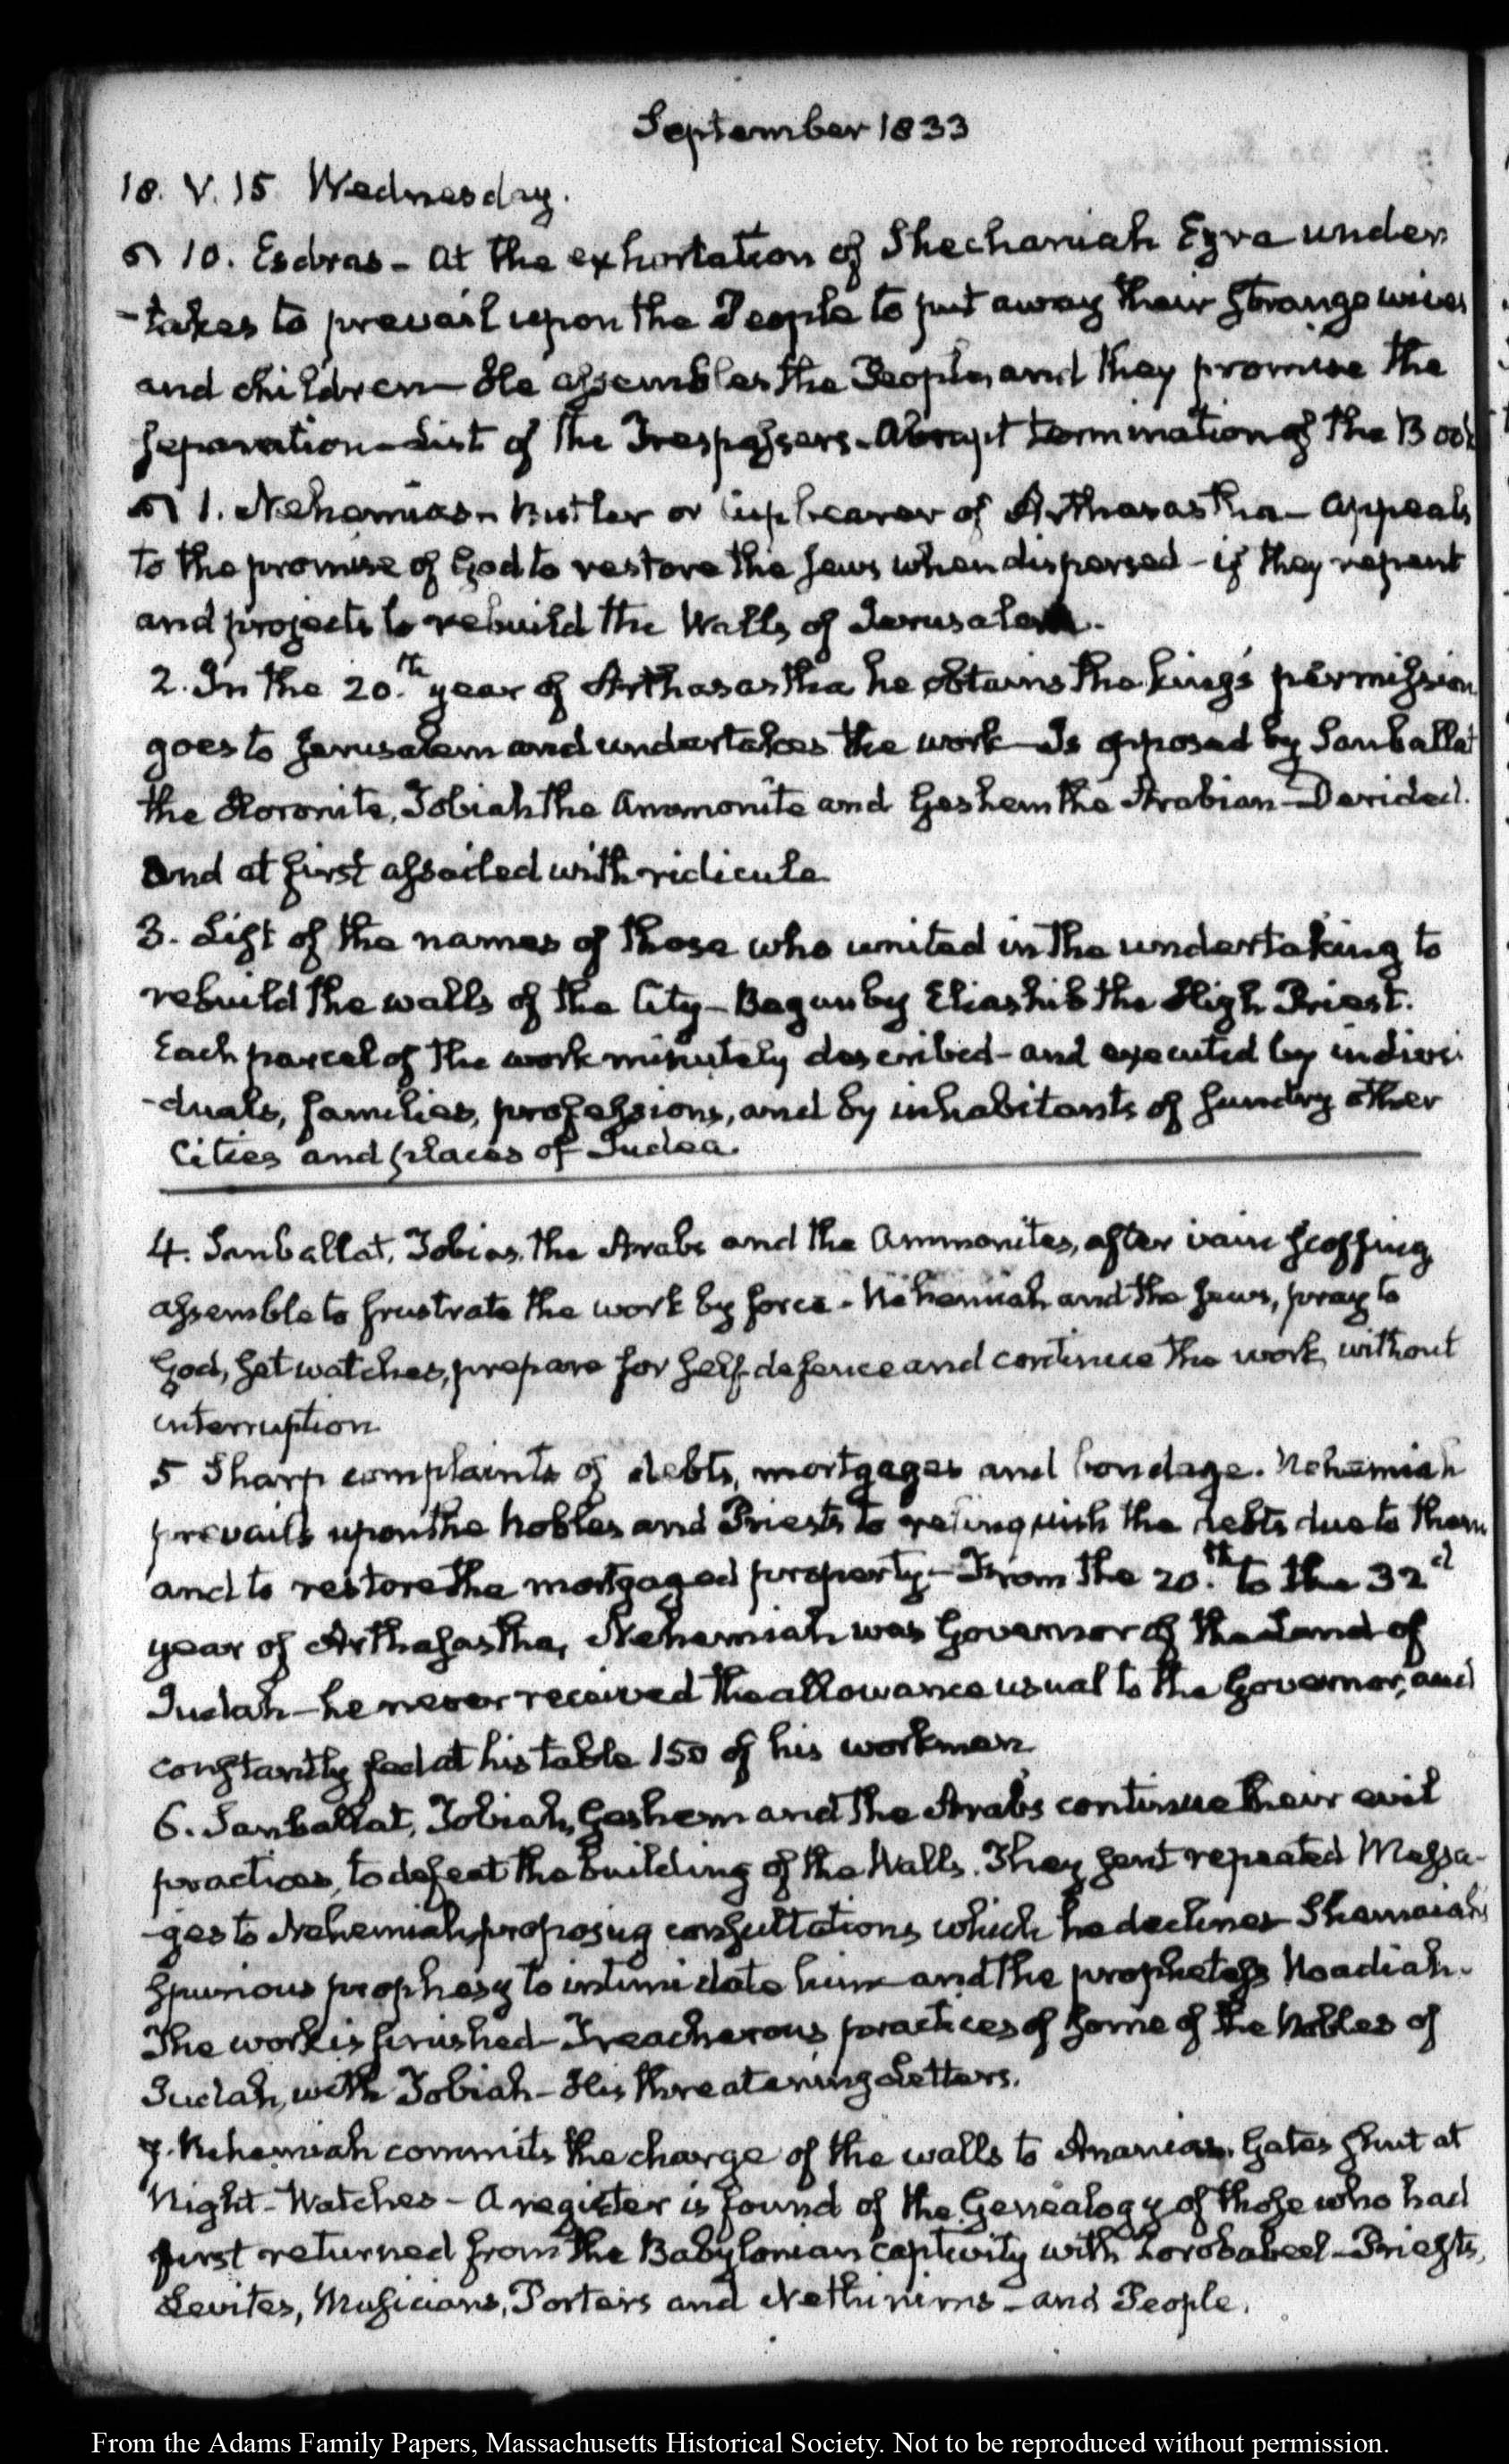 September 1833
18. V. 15 Wednesday.
10. Esdras - At the exhortation of Shechaniah Ezra under
-takes to prevail upon the People to put away their strange wives
and children - He assembles the People, and they promise the
separation - List of the Trespassers - Abrupt termination of the Book
1. Nehemias - Butler or Cupbearer of Arthasastha - Appeals
to the promise of God to restore the Jews when dispersed - if they repent
and projects to rebuild the Walls of Jerusalem.
2. In the 20.th year of Arthasastha he obtains the king's permission
goes to Jerusalem and undertakes the work - Is opposed by Sanballat
the Horonite, Tobiah the Ammonite and Geshem the Arabian - Derided.
and at first assailed with ridicule
3. List of the names of those who united in the undertaking to
rebuild the walls of the City - Begun by Eliashib the High Priest.
Each parcel of the work minutely described - and executed by indivi
-duals, families, professions, and by inhabitants of sundry other
Cities and places of Judea.
4. Sanballat, Tobias, the Arabs and the Ammonites, after vain scoffing
assemble to frustrate the work by force - Nehemiah and the Jews, pray to
God, set watches, prepare for self-defence and continue the work, without
interruption
5 Sharp complaints of debts, mortgages and bondage. Nehemiah
prevails upon the Nobles and Priests to relinquish the debts due to them
and to restore the mortgaged property - From the 20.th to the 32d
year of Arthasastha, Nehemiah was Governor of the Land of
Judah - he never received the allowance usual to the Governor, and
constantly fed at his table 150 of his workmen
6. Sanballat, Tobiah, Geshem and the Arabs continue their evil
practices, to defeat the building of the Walls. They sent repeated Messa-
-ges to Nehemiah, proposing consultations, which he declines - Shemaiah's
spurious prophesy to intimidate him - and the prophetess Noadiah.
The work is finished - Treacherous practices of some of the Nobles of
Judah, with Tobiah - His threatening Letters.
7. Nehemiah commits the charge of the walls to Ananias. Gates shut at
Night - Watches - A register is found of the Genealogy of those who had
first returned from the Babylonian captivity with Zorobabeel - Priests,
Levites, Musicians, Porters and Nethinims - and People.
From the Adams Family Papers, Massachusetts Historical Society. Not to be reproduced without permission.